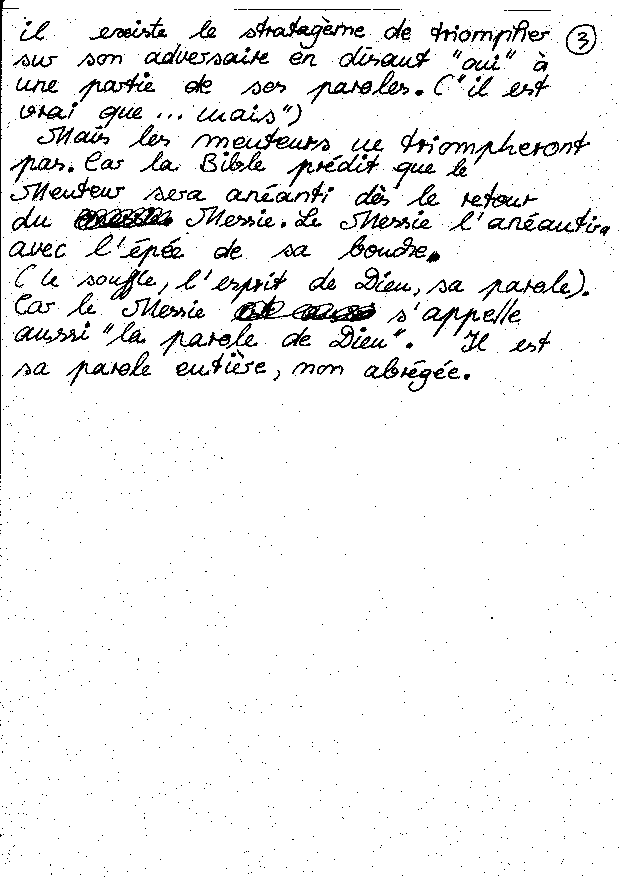 il existe le stratagème de triompher ③
sur son adversaire en disant "oui" à
une partie de ses paroles. ("il est
vrai que ... mais")
Mais les menteurs ne triompheront
pas. Car la Bible prédit que le
Menteur sera anéanti dès le retour
du Messie. Le Messie l'anéantira
avec l'épée de sa bouche.
(le souffle, l'esprit de Dieu, sa parole).
Car le Messie s'appelle
aussi "la parole de Dieu". Il est
sa parole entière, non abrégée.